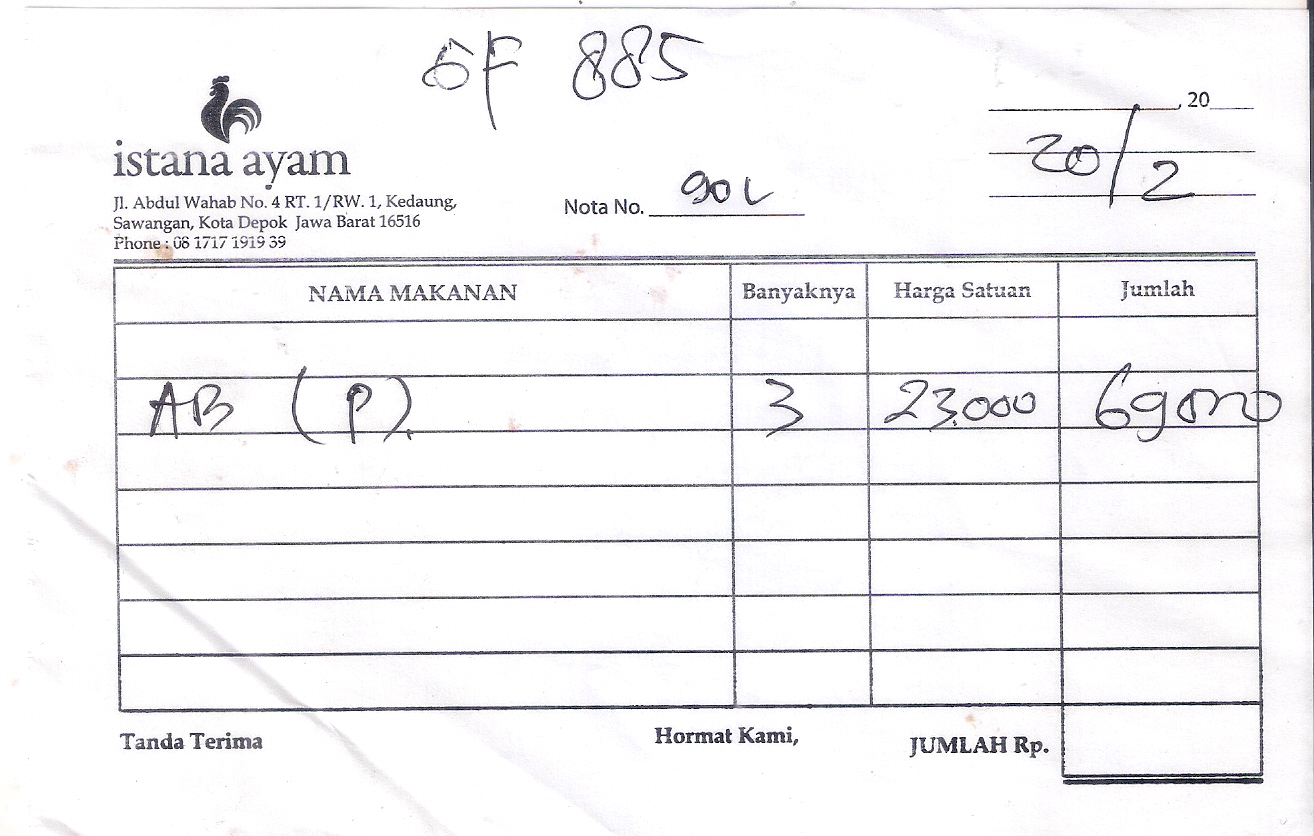 GF 885
istana ayam
Jl. Abdul Wahab No. 4 RT. 1/RW. 1, Kedaung,
Sawangan, Kota Depok Jawa Barat 16516
Phone : 08 1717 1919 39
Nota No.
, 20
20/2
NAMA MAKANAN Banyaknya Harga Satuan Jumlah
AB (P). 3 23.000 69000
Tanda Terima Hormat Kami, JUMLAH Rp.